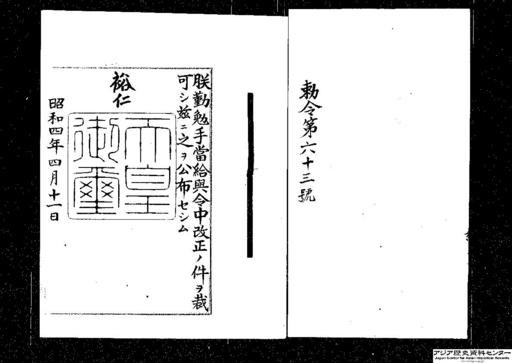 勅令第六十三號
朕勤勉手當給與令中改正ノ件ヲ裁
可シ玆ニ之ヲ公布セシム
裕仁
天皇
御璽
昭和四年四月十一日
アジア歴史資料センター
Japan Center for Asian Historical Records